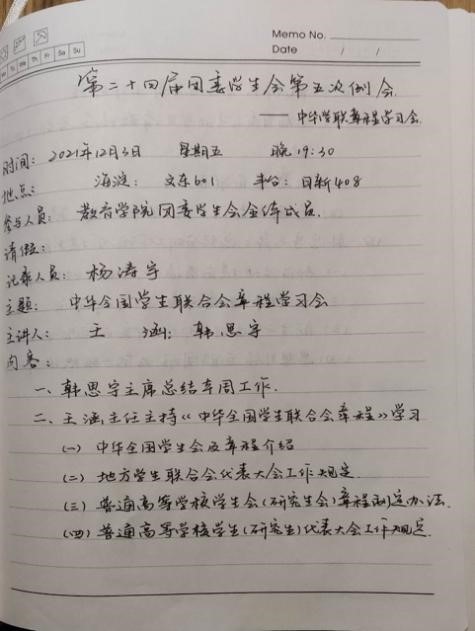 Memo No.
Date / /
Th Fr Sa Su
第二十四届团委学生会第五次例会
——中华学联章程学习会
时间：2021年12月3日 星期五 晚19:30
地点： 海淀：文东601 丰台：日新408
参与人员：教育学院团委学生会全体成员
请假：
记录人员：杨涛宇
主题：中华全国学生联合会章程学习会
主讲人：王涵；韩思宇
内容：
一、韩思宇主席总结本周工作.
二、王涵主任主持《中华全国学生联合会章程》学习
(一) 中华全国学生会及章程介绍
(二) 地方学生联合会代表大会工作规定
(三) 普通高等学校学生会(研究生会)章程制定办法.
(四) 普通高等学校学生(研究生)代表大会工作规定.